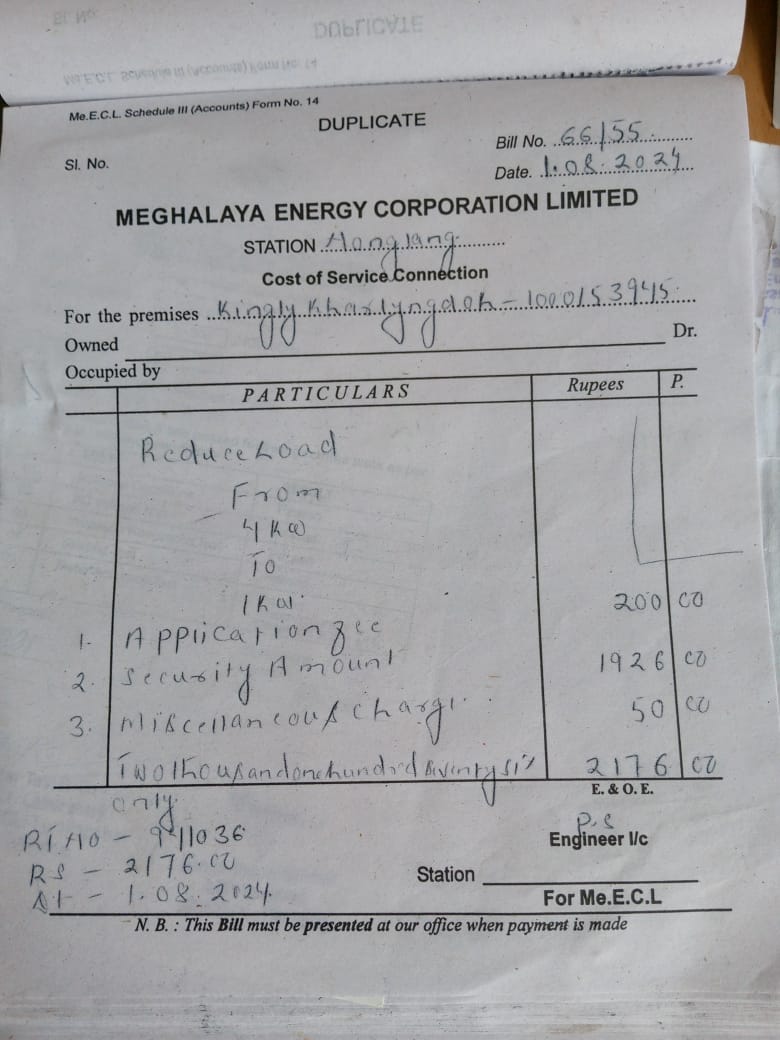 DUPLICATE
Me.E.C.L. Schedule III (Accounts) Form No. 14
Me.E.C.L. Schedule III (Accounts) Form No. 14
DUPLICATE
Sl. No.
Bill No. 66/55
Date. 1.08.2024
MEGHALAYA ENERGY CORPORATION LIMITED
STATION
Cost of Service Connection
For the premises Kingly Kharlyngdoh - 1000153945
Owned
Dr.
Occupied by
PARTICULARS Rupees P.
Reduce Load
From
4 KW
To
1 KW
1. Application fee 200 00
2. Security Amount 1926 00
3. Miscellaneous charge 50 00
Two thousand one hundred seventy six 2176 00
only
E. & O. E.
P.S
Engineer I/c
RS - 2176.00
Dt - 1.08.2024
Station
For Me.E.C.L
N. B. : This Bill must be presented at our office when payment is made